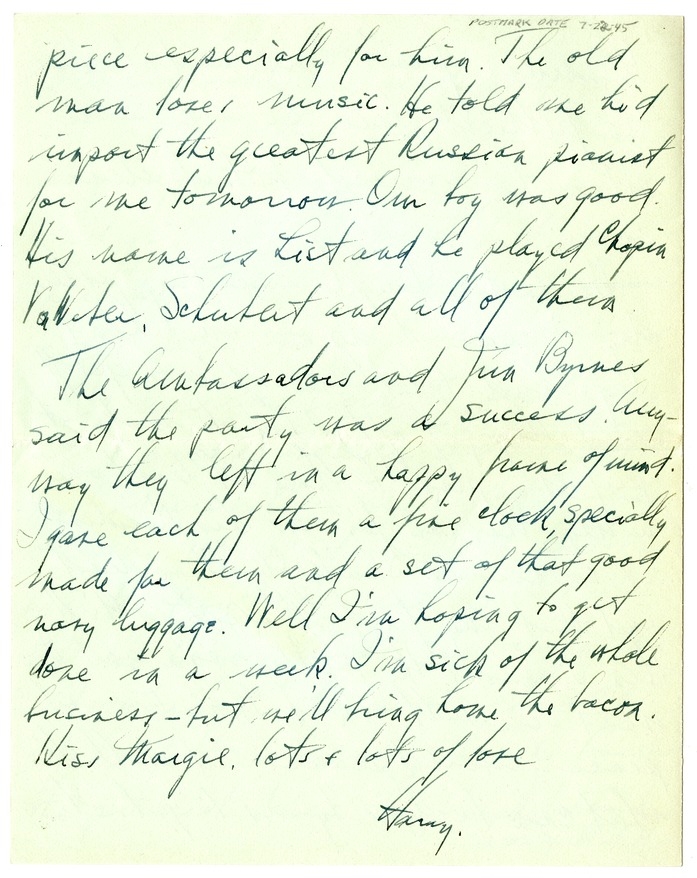 POSTMARK DATE 7-22-45
piece especially for him. The old
man loves music. He told me he'd
import the greatest Russian pianist
for me tomorrow. Our boy was good.
His name is List and he played Chopin
Schubert and all of them
The Ambassadors and Jim Byrnes
said the party was a success. Any-
way they left in a happy frame of mind.
I gave each of them a fine clock, specially
made for them and a set of that good
navy luggage. Well I'm hoping to get
done in a week. I'm sick of the whole
business – but we'll bring home the bacon.
Kiss Margie, lots & lots of love
Harry.